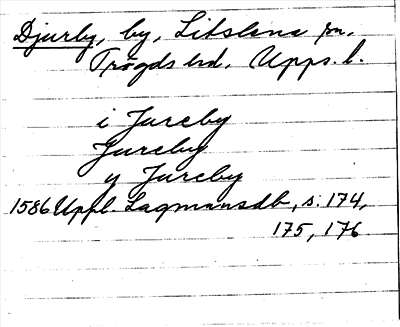 Djurby, by, Litslena sn,
Trögds hd. Upps. l.
i Jureby
Jureby
y Jureby
1586 Uppl. Lagmansdb, s. 174,
175, 176